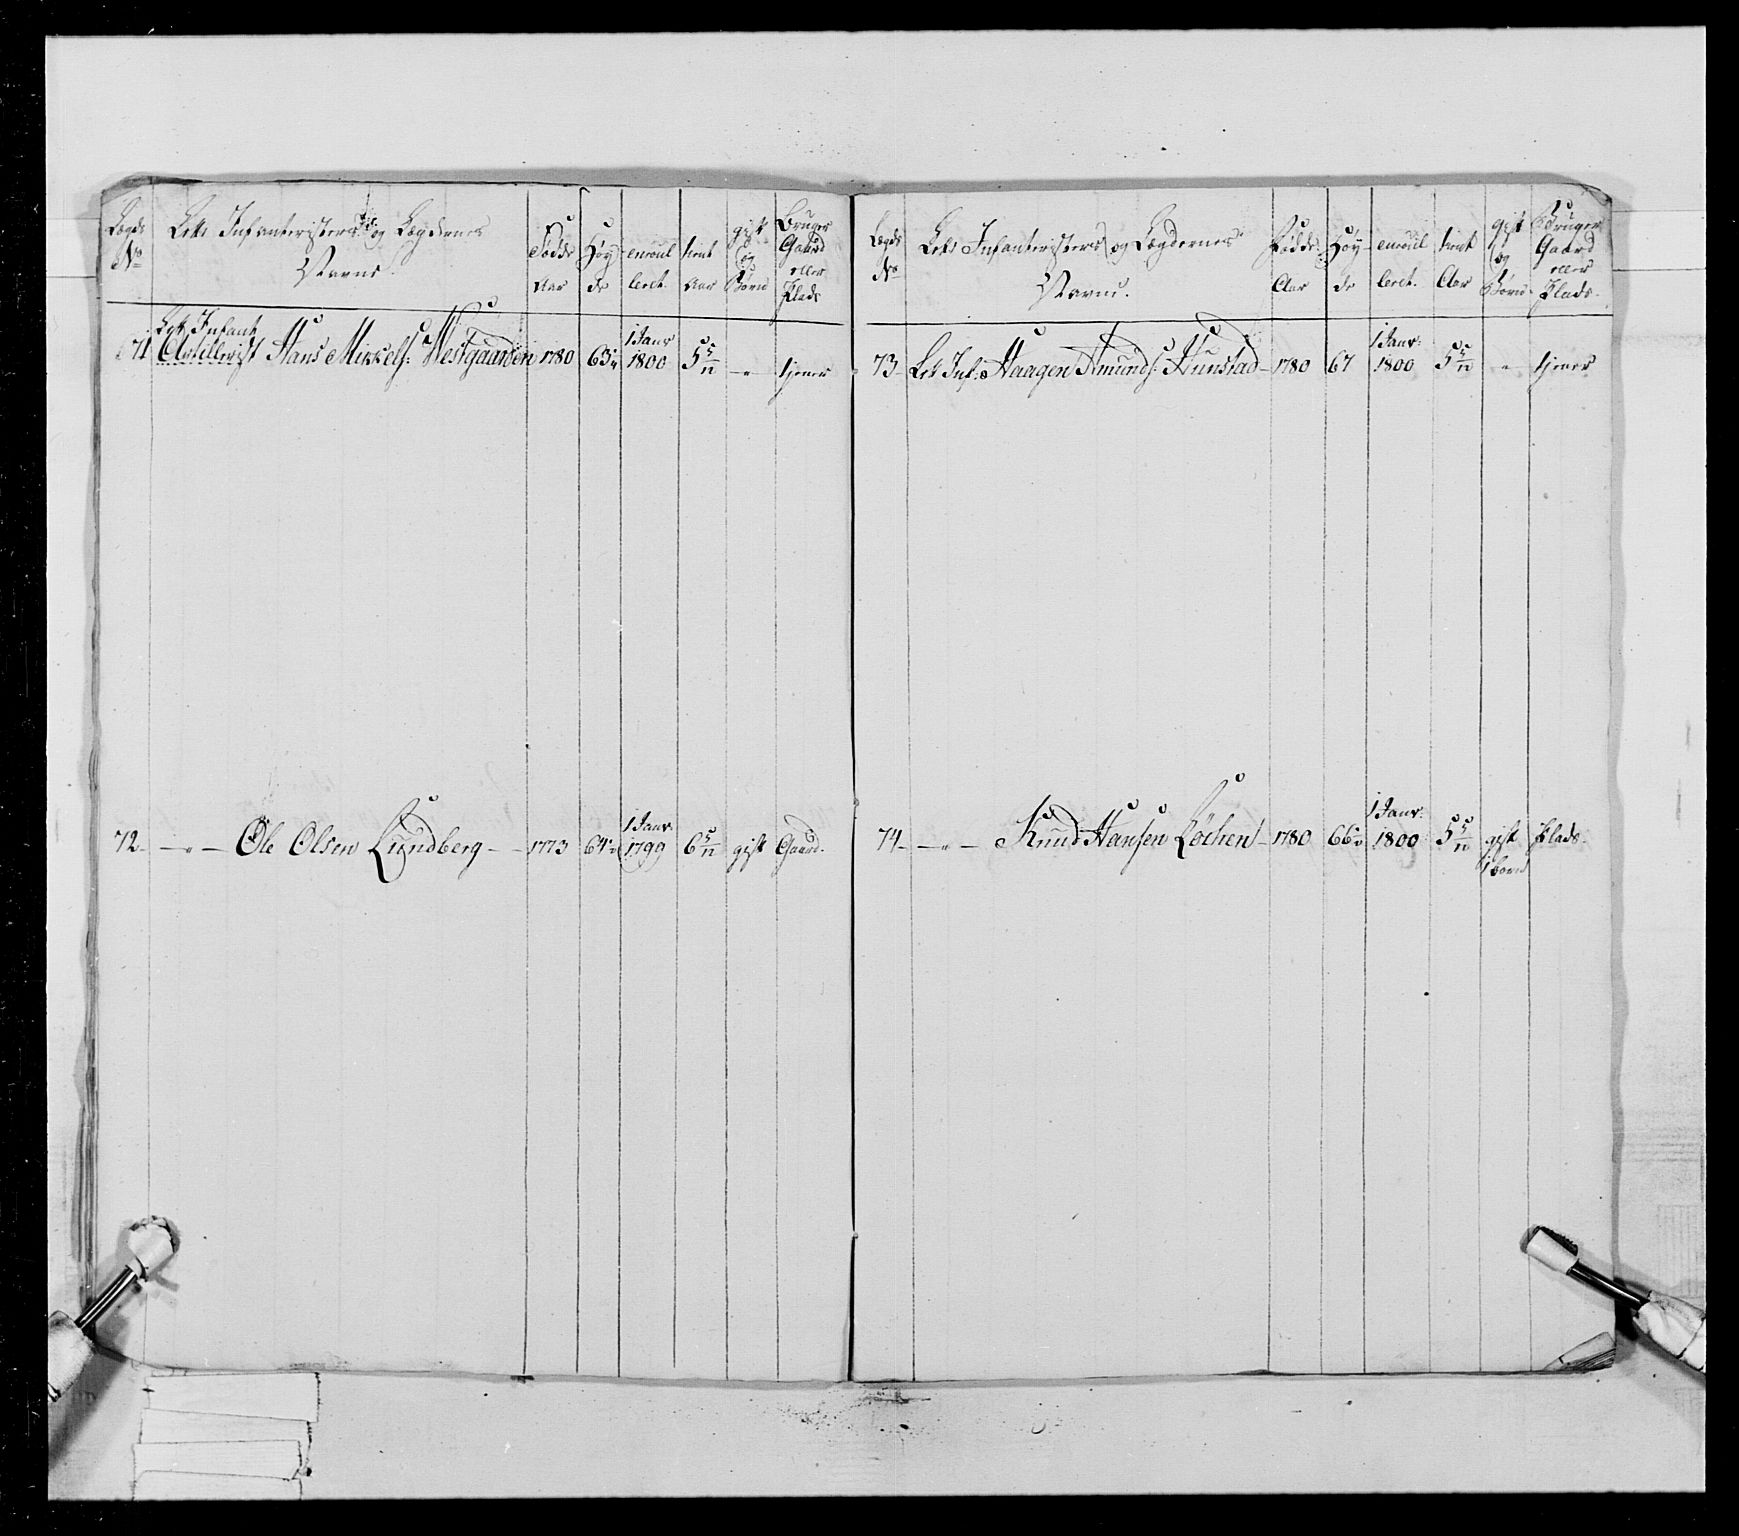 Lægds
No
Lette Infanteristers og Lægdernes
Navne.
Fødde
Aar
Høy
de
enroul
leret.
tient
Aar
gift
og
Børn
Bruger
Gaard
eller
Plads
71 Let Infant
Artillerist Hans Mikkels: Westgaarden 1780 63 1 Janr 1800 5 5/12 -"- tjener
72- -"- Ole Olsen Lundberg - 1773 64 1 Janr 1799 6 5/12 gift Gaard.
Lægds
No
Lette Infanteristers og Lægdernes
Navne.
Fødde
Aar
Høy
de
enroul
leret.
tient
Aar
gift
og
Børn
Bruger
Gaard
eller
Plads.
73- Let Inf: Haagen Amunds: Hunstad - 1780 67 1 Janr: 1800 5 5/12 " tjener
74- -"- Knud Hansen Løchen - 1780 66 1 Janr: 1800 5 5/12 gift Plads.
1 barn